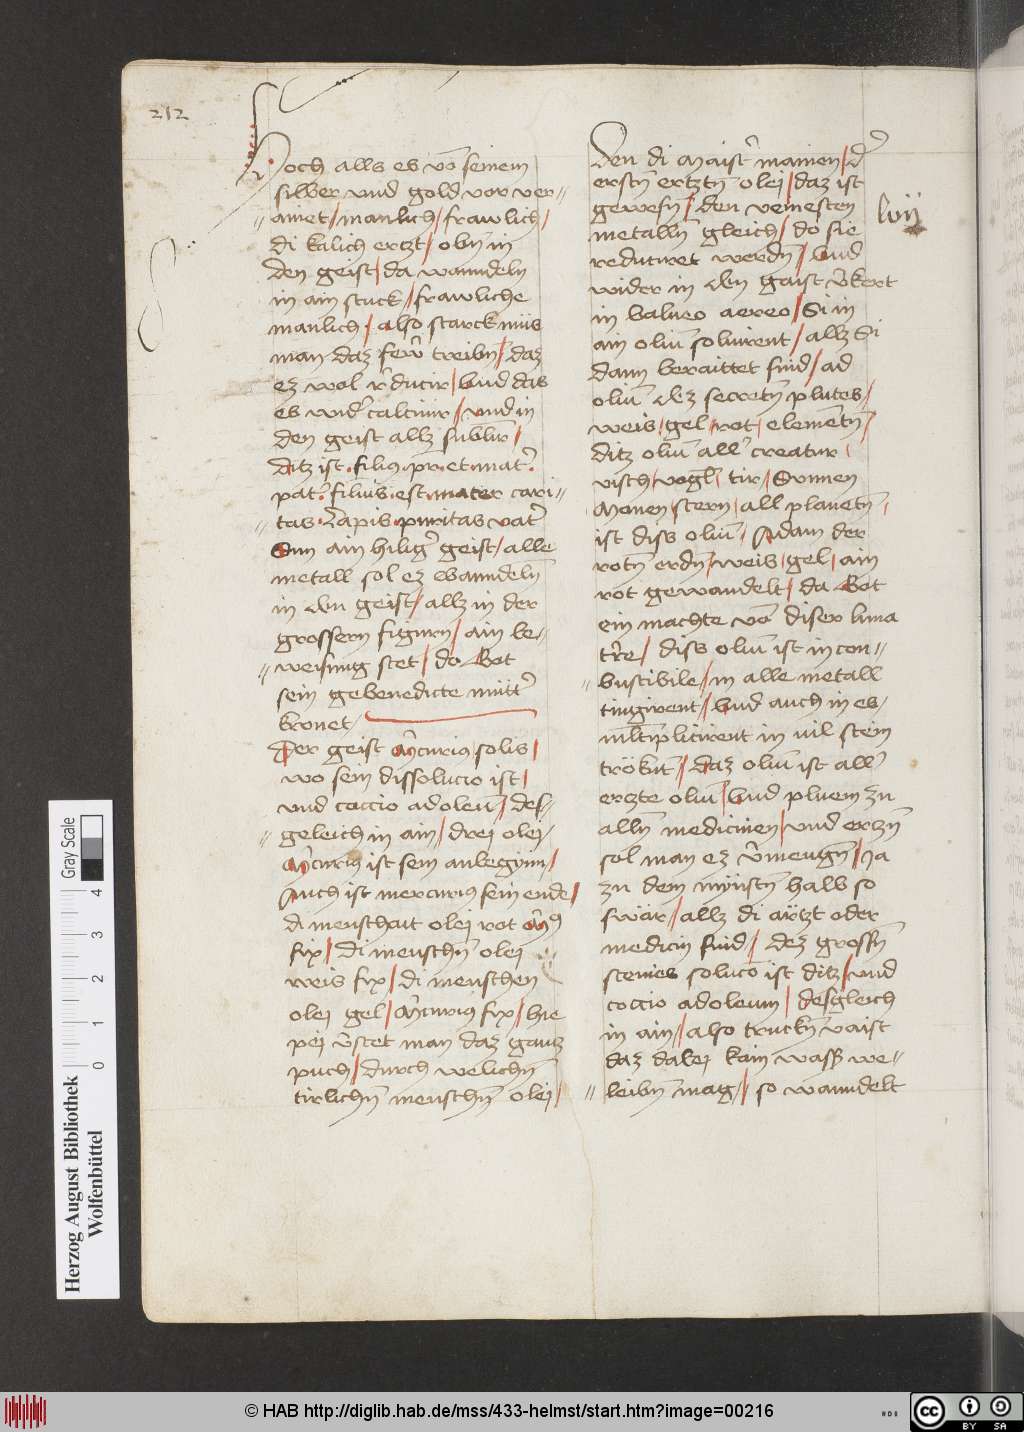 212
Noch alls es vō seinem
silber vnd gold vor ver=
=ainet / manlich / frawlich /
di kalich ertzt / obn̄ in
den geist / da wanndeln
in ain stuck / frawliche
manlich / also starck mus
man daz fewr̄ treibn̄ / daz
ez wol r̄ducir / vnd das
es vnd̕ calcinir / vnd in
den geist allz sublim̄ /
ditz ist . filius . pr̄ . et . mat̕ .
pat̕ . filius . est . mater cari=
=tas . Lapis . puritas vat̕
Sun ain hilig̕ geist / alle
metall sol ez wanndeln̄
in den geist / allz in der
grossern figurn̄ / ain be=
=weisung stet / do Got
sein gebenedicte mutt̕
kronet /
Der geist M̄curius solis /
wo sein dissolucio ist /
vnd coccio ad oleū / des=
=geleich in ain / drei olei
M̄curius ist sein anbegyn̄ /
Auch ist mercurius sein ende /
di menschait olei rot M̄9
fix / di menschn̄ olei
weis fix / di menschen
olei gel / M̄curius fix / hie
pei v̄stet man daz gantz
puch / durch welichn̄
tirlichn̄ menschn̄ olei /
den di Maist̕ mainen / d̕
erstn̄ ertztn̄ olei / daz ist
gewesn̄ / den vemesten
lvij
metalln̄ gleich / do sie
reduciret werdn̄ / vnd
wider in den gaist v̄kert
in balneo aereo / Si in
ain oliū soluirent / allz Si
dann beraittet sind / ad
oliū dez secretn̄ plutes /
weis / gel / rot / elemētn̄ /
ditz oliū all̕ creatur /
visch / vogl̄ / tir / Sunnen
Monen / stern / all planetn̄ /
ist diss oliū / Adam der
rotn̄ erdn̄ / weis / gel / ain
rot gewandelt / da Got
ein machte vō diser lima
tr̄re / diss oliū ist in con=
=bustibile / in alle metall
tingirent / vnd auch in es
ml̄tiplicirent in vil stein
trōkn̄t / daz oliū ist all̕
ertzte oliū / vnd pluem zu
alln̄ medicinen / vnd ertzn̄
sol man ez v̄mengn̄ / ja
zu dem mynstn̄ halb so
swār / allz di ārtzt oder
medicin sind / dez grossn̄
steines solucō ist ditz / vnd
coccio ad oleum / desgleich
in ain / also truckn̄ vaist
daz dabei kain wasß we=
=leibn̄ mag / so wanndelt
Herzog August Bibliothek
Wolfenbüttel
0 1 2 3 4
Gray Scale
© HAB http://diglib.hab.de/mss/433-helmst/start.htm?image=00216
HAB
cc BY SA